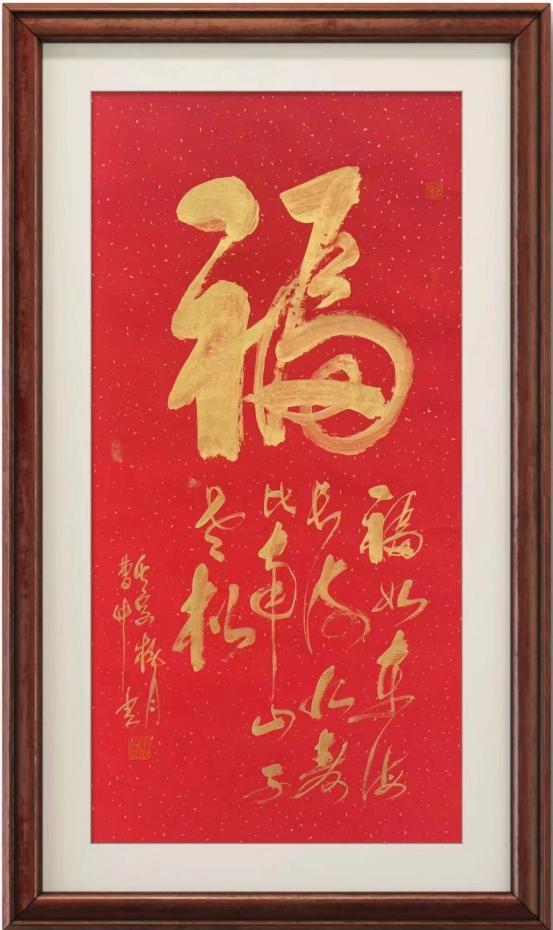 福
福如东海
长流水寿
比南山不
老松
桃月
书